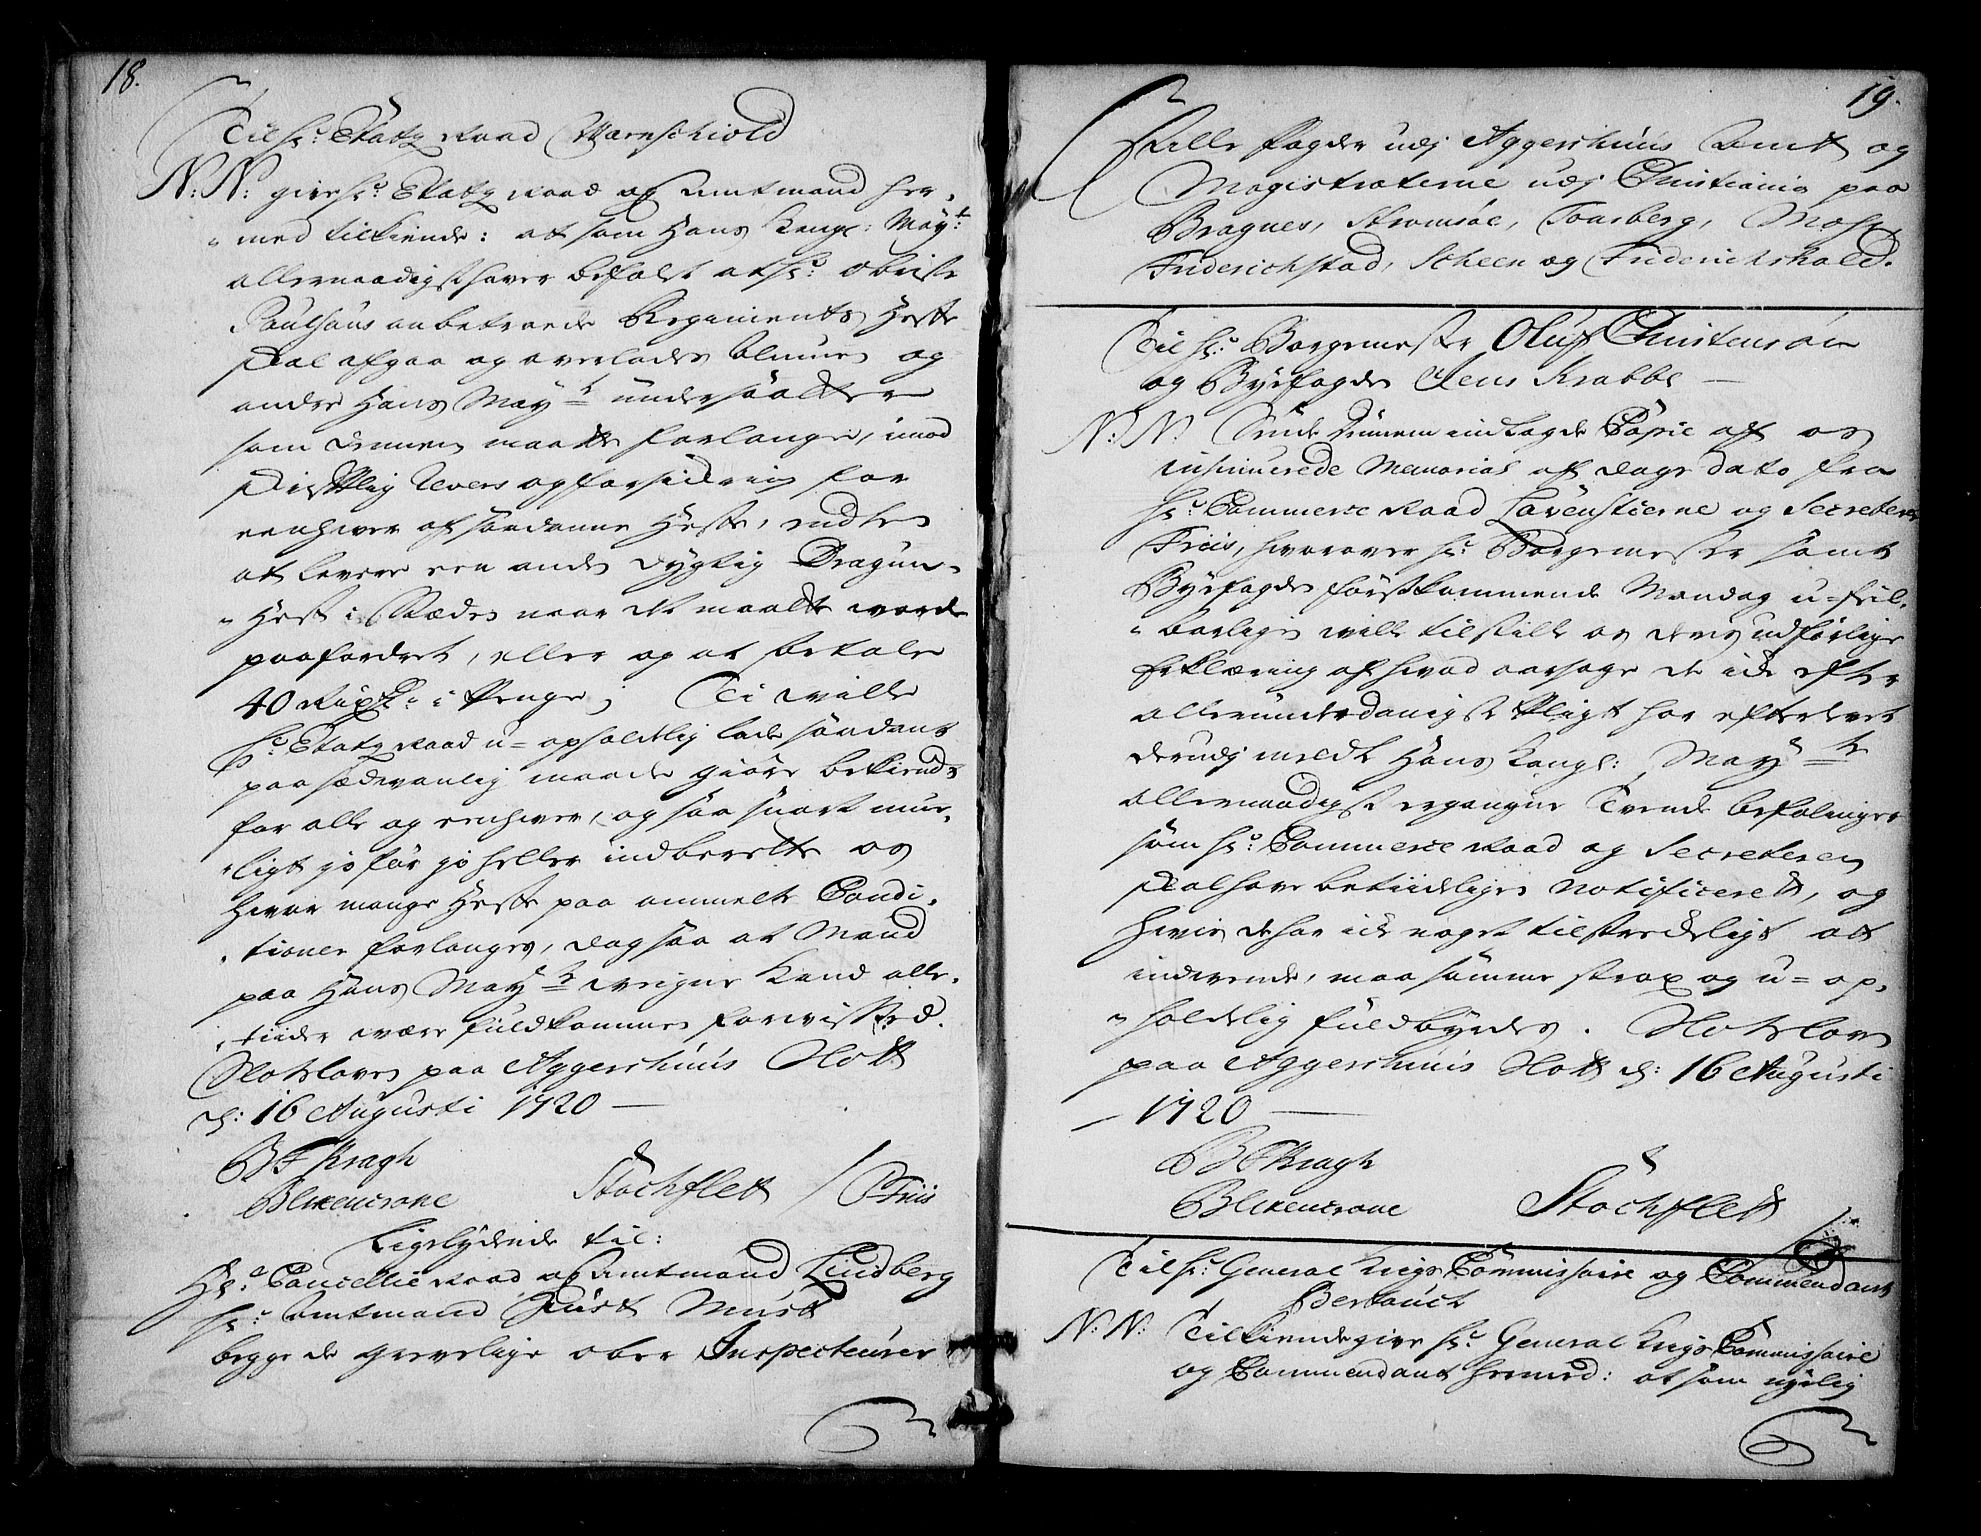 18.
Til Hr: Etatz Raad Warnschiold
N: N: give Hr: Etatz Raad og Amtmand her-
med tilkiende: at som Hans Kongl: Mayt:
allernaadigst haver befalet at Hr: Obriste
Paulsans anbetroede Regiments Heste
skal afgaa og overlades Almuen og
andre Hans Mayts undersaatter
som dennem maatte forlange, imod
skriftlig Revers og forsickring for
eenhver af saadanne Heste, endten
at levere een anden dygtig Dragun-
Hest i Stæden naar det maatte vorde
paafordret, eller og at betale
40 Rixdr: i Penge; Ti wille
Hr: Etatz Raad u-opholdelig lade saadant
paa sædvanlig maade giøre bekiendt
for alle og eenhver, og saa snart mue-
ligt jo før jo heller indberette os
hvor mange Heste paa ommelte Condi-
tioner forlanges, dog saa at Mand
paa Hans Mayts vegne kand alle-
tiider være fuldkommen forvissed.
Slotsloven paa Aggershuus Slott
d: 16 Augusti 1720
BF Kragh
Blixencrone Stochflett / CFriis
Ligelydende til:
Hr: Cancellie Raad og Amtmand Lindberg
Hr: Amtmand Just Must
begge de grevelige ober Inspecteurer
19.
Alle fogder udj Aggershuus Amt og
Magistraterne udj Christiania paa
Bragnes, Strømsøe, Tønsberg, Moss,
Friderichstad, Scheen og Friderichshald.
Til Hr: Borgemester Oluf Christensøn
og Byefogden Jens Krabbe
N: N: Sende dennem indlagde Copie af os
insinuerede Memorial af dags dato fra
Hr: Commerce Raad Løvenstierne og Secreteren
Friis, hvorover Hr: Borgemester samt
Byefogden førstkommende Mandag u-feil-
barligen wille tilstille os deris udførlige
Erklæring af hvad aarsage de icke efter
allerunderdanigste Pligt har efterlevet
derudj meldt Hans Kongl: Mayts
allernaadigst ergangne tvende befalinger
som Hr: Commerce Raad og Secreteren
skal have betiideligen notificerett, og
hvis de har icke noget tilstrædeligt at
indvende, maa samme strax og u-op-
holdelig fuldbyrdes. Slotsloven
paa Aggershuus Slott d: 16 Augusti
1720
BF Kragh
Blixencrone Stochflett
Til Hr: General Krigs Commissaire og Commendant
Berlouch
N: N: Tilkiendegive Hr: General Krigs Commissaire
og Commendant hermed: at som nylig